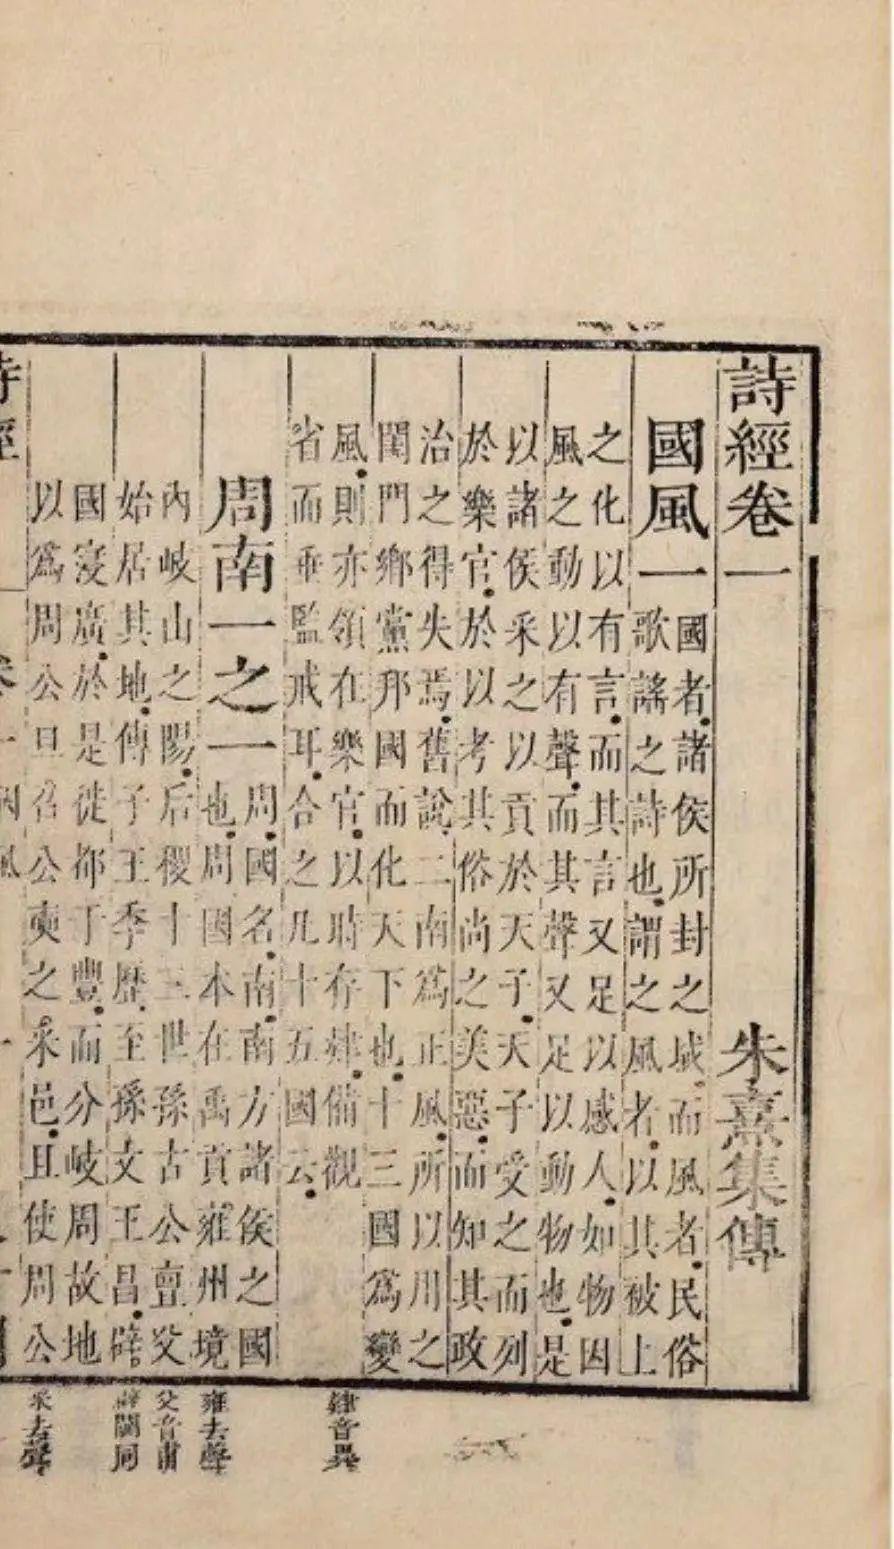 詩經卷一
朱熹集傳
國風一
國者諸侯所封之域而風者民俗
歌謠之詩也謂之風者以其被上
之化以有言而其言又足以感人如物因
風之動以有聲而其聲又足以動物也是
以諸侯采之以貢於天子天子受之而列
於樂官於以考其俗尚之美惡而知其政
治之得失焉舊說二南爲正風所以用之
閨門鄉黨邦國而化天下也十三國爲變
風則亦領在樂官以時存肄備觀
省而垂監戒耳合之凡十五國云
周南一之一
周國名南南方諸侯之國
也周國本在禹貢雍州境
內岐山之陽后稷十三世孫古公亶父
始居其地傳子王季歷至孫文王昌辟
國寖廣於是徙都于豐而分岐周故地
以爲周公旦召公奭之采邑且使周公
詩經
卷一
國風
一
肄音異
雍去聲
父音甫
辟闢同
采去聲